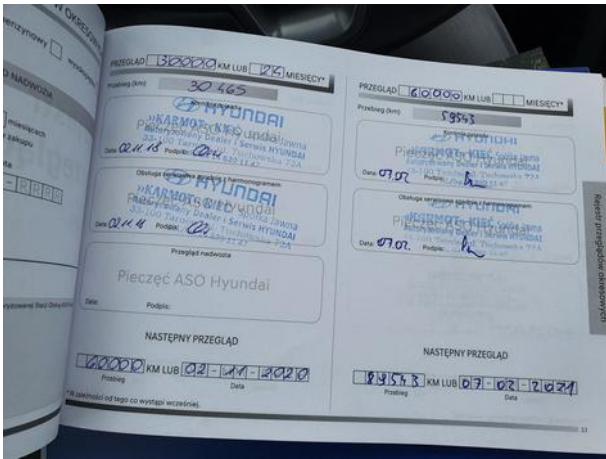 OKRESOW
benzynowy
NADWOZIA
miesiącach
zakupu
PRZEGLĄD 30000 KM LUB 24 MIESIĘCY*
Przebieg (km) 30 465
HYUNDAI
Pieczęć ASO Hyundai
»KARMOT - KIEĆ« Spółka Jawna
Autoryzowany Dealer i Serwis HYUNDAI
33-100 Tarnów, ul. Tuchowska 72A
Data: 02.11.18 Podpis:
Obsługa zgodnie z harmonogramem
HYUNDAI
Pieczęć ASO Hyundai
»KARMOT - KIEĆ« Spółka Jawna
Autoryzowany Dealer i Serwis HYUNDAI
33-100 Tarnów, ul. Tuchowska 72A
Data: 02.11.18 Podpis:
Przegląd nadwozia
Pieczęć ASO Hyundai
Data: Podpis:
NASTĘPNY PRZEGLĄD
60000 KM LUB 02 - 11 - 2020
Przebieg Data
* W zależności od tego co wystąpi wcześniej.
PRZEGLĄD 60000 KM LUB MIESIĘCY*
Przebieg (km) 59543
HYUNDAI
»KARMOT - KIEĆ« Spółka Jawna
Autoryzowany Dealer i Serwis HYUNDAI
Tuchowska 72A
Data: 07.02. Podpis:
Obsługa zgodnie z harmonogramem
HYUNDAI
»KARMOT - KIEĆ« Spółka Jawna
Autoryzowany Dealer i Serwis HYUNDAI
Tuchowska 72A
Data: 07.02. Podpis:
NASTĘPNY PRZEGLĄD
89543 KM LUB 07 - 02 - 2021
Przebieg Data
Rejestr przeglądów okresowych
33